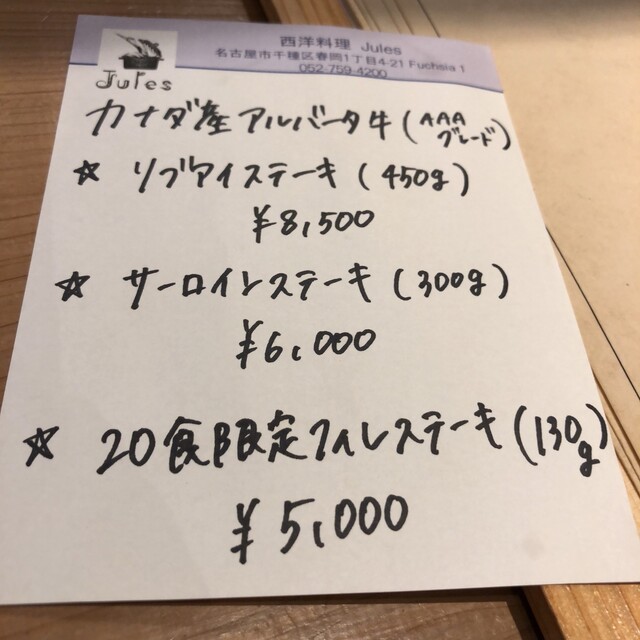 西洋料理 Jules
名古屋市千種区春岡1丁目4-21 Fuchsia 1
052-759-4200
Jules
カナダ産アルバータ牛(AAAグレード)
☆ リブアイステーキ(450g)
¥8,500
☆ サーロインステーキ(300g)
¥6,000
☆ 20食限定フィレステーキ(130g)
¥5,000